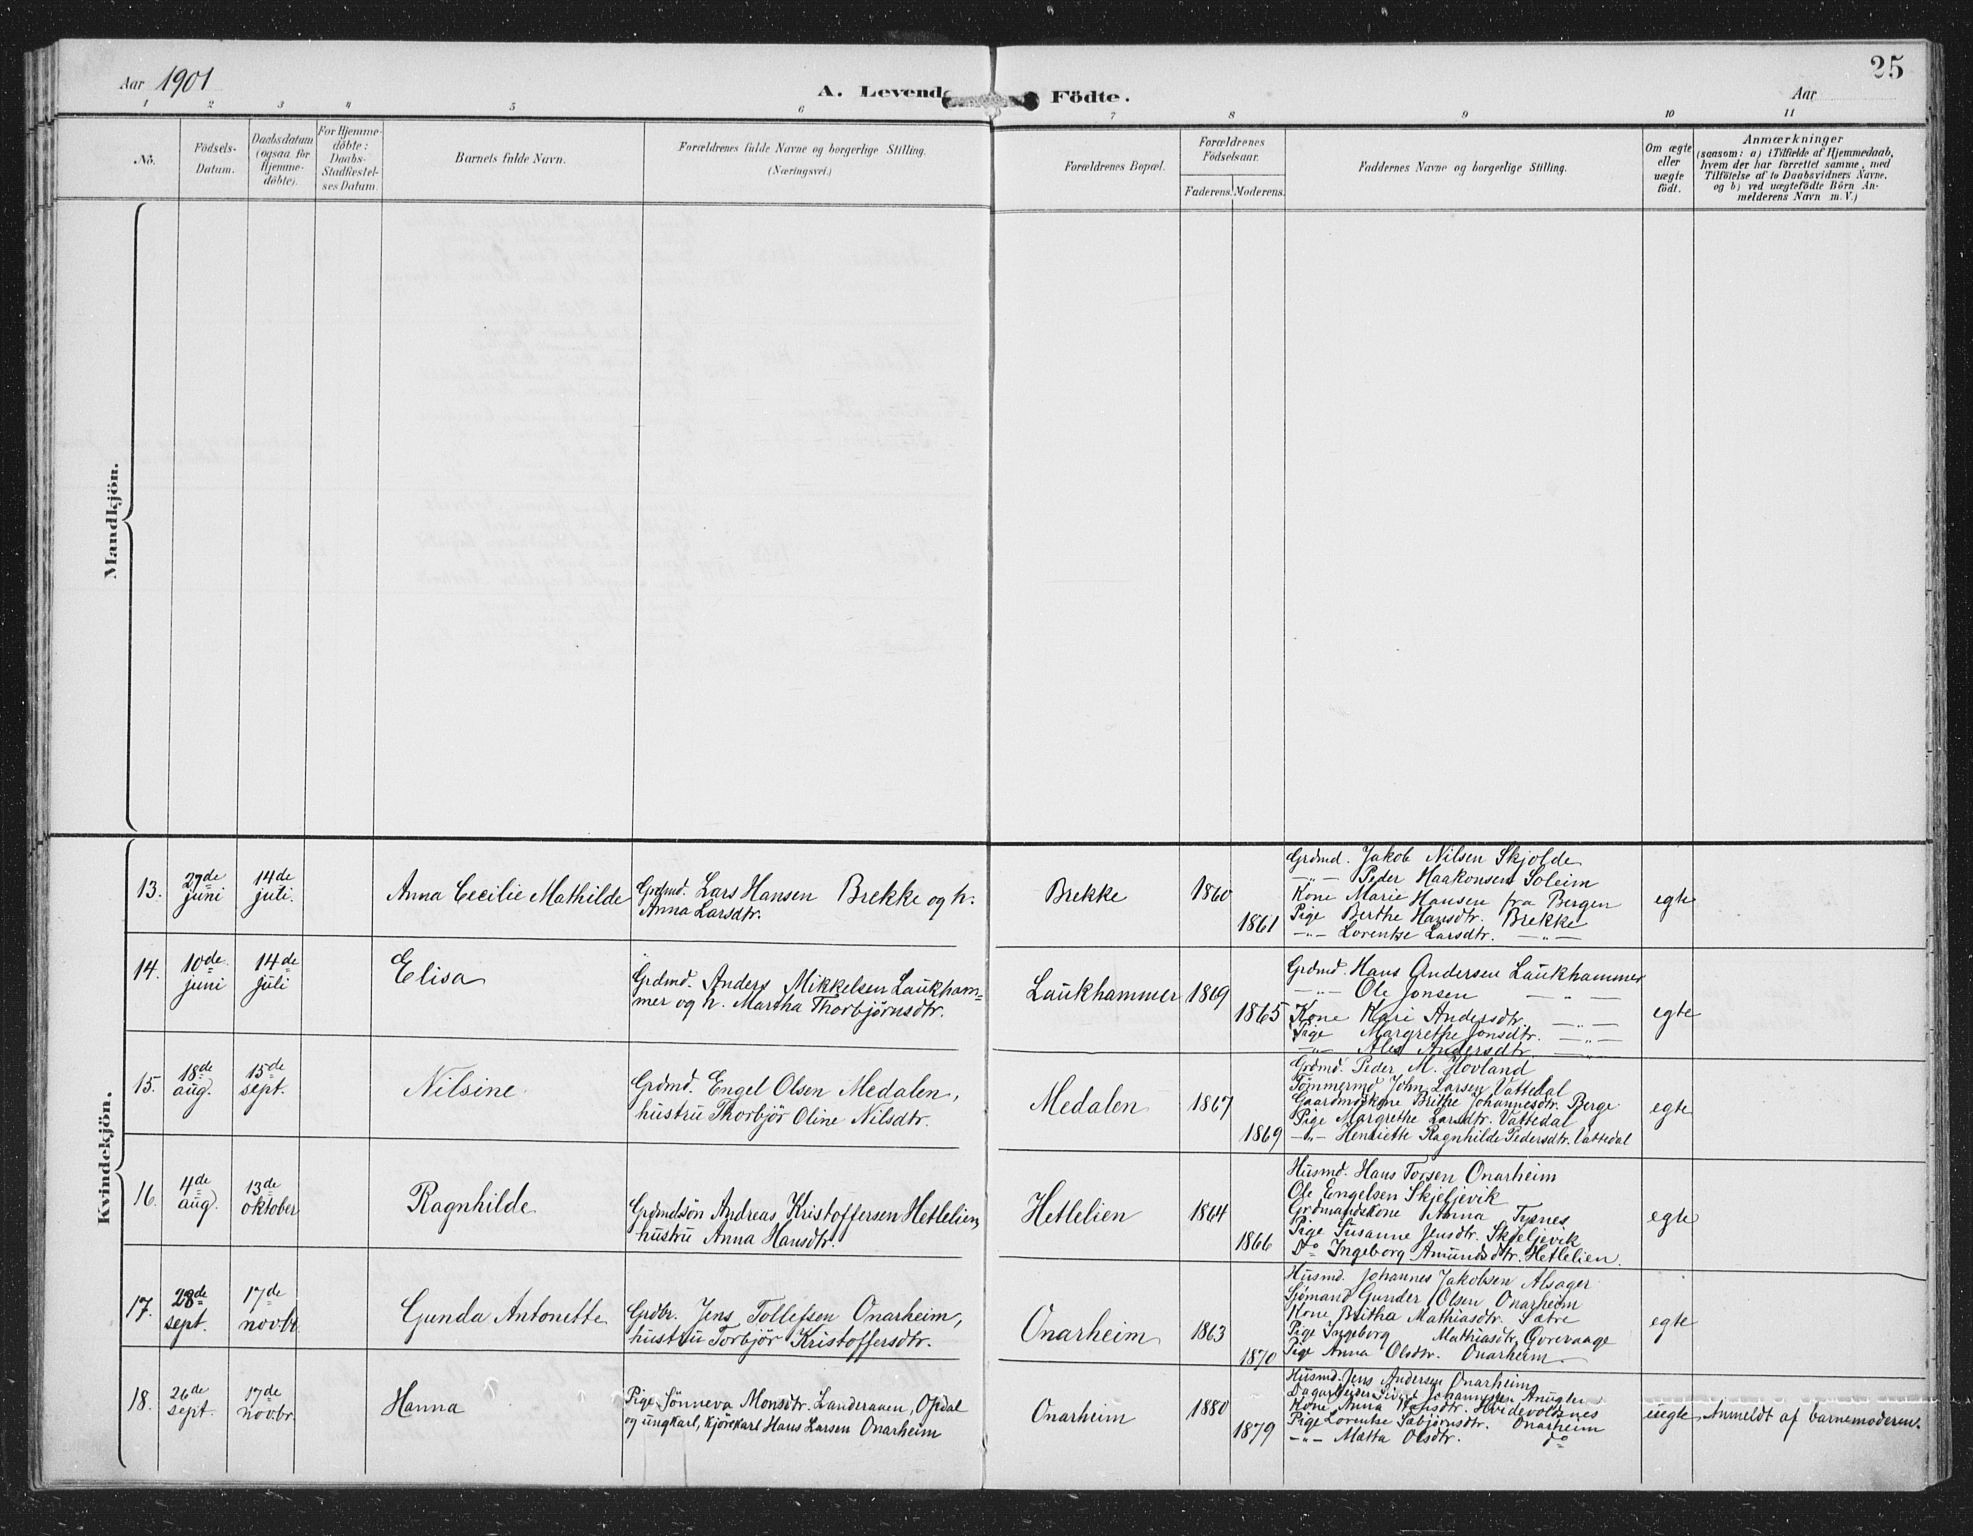 25
Aar 1901
A. Levende Födte.
Aar
1 2 3 4 5 6 7 8 9 10 11
No.
Födsels-Datum.
Daabsdatum (ogsaa for hjemme-döbte).
For Hjemme-döbte: Daabs-Stadfæstel-ses Datum.
Barnets fulde Navn.
Forældrenes fulde Navne og borgerlige Stilling.
(Næringsvei.)
Forældrenes Bopæl.
Forældrenes Födselsaar.
Faderens. Moderens.
Faddernes Navne og borgerlige Stilling.
Om ægte eller uægte födt.
Anmærkninger
(saasom: a) i Tilfælde af Hjemmedaab,
hvem der har forrettet samme, med
Tilföielse af to Daabsvidners Navne,
og b) ved uægtefödte Börn An-
melderens Navn m. V.)
Mandkjön.
Kvindekjön.
13. 27de juni 14de juli. Anna Cecilie Mathilde
Grdmd. Lars Hansen Brekke og h.
Anna Larsdtr.
Brekke 1860 1861
Grdmd. Jakob Nilsen Skjolde
—"— Peder Haakonsen Soleim
Kone Marie Hansen fra Bergen
Pige Berthe Hansdtr. Brekke
—"— Lorentse Larsdtr. —"—
egte
14. 10de juni 14de juli Elisa
Grdmd. Anders Mikkelsen Laukham=
mer og h. Martha Thorbjørnsdtr.
Laukhammer 1869 1865
Grdmd. Hans Andersen Laukhammer
—"— Ole Jonsen —"—
Kone Kari Andersdtr. —"—
Pige Margrethe Jonsdtr. —"—
—"— Ales Andersdtr. —"—
egte
15. 18de aug. 15de sept. Nilsine
Grdmd. Engel Olsen Medalen,
hustru Thorbjør Oline Nilsdtr.
Medalen 1867 1869
Grdmd. Peder M. Hovland
Tømmermd. John Larsen Vattedal
Gaardmdskone Brithe Johannesdtr. Berge
Pige Margrethe Larsdtr. Vattedal
—"— Henriette Ragnhilde Pedersdtr. Vattedal
egte
16. 4de aug. 13de oktober Ragnhilde
Grdmdsøn Andreas Kristoffersen Hetlelien,
hustru Anna Hansdtr.
Hetlelien 1864 1866
Husmd. Hans Torsen Onarheim
Ole Engelsen Skjeljevik
Grdmandskone Anna Tysnes
Pige Susanne Jensdtr. Skjeljevik
Do Ingeborg Amundsdtr. Hetlelien.
egte
17. 28de sept. 17de novbr. Gunda Antonette
Grdbr. Jens Tollefsen Onarheim,
hustru Torbjør Kristoffersdtr.
Onarheim 1863 1870
Husmd. Johannes Jakobsen Alsager
Sjømand Gunder Olsen Onarheim
Kone Britha Mathiasdtr. Sætre
Pige Ingeborg Mathiasdtr.
Pige Anna Olsdtr. Onarheim
egte
18. 26de sept. 17de novbr. Hanna
Pige Sønneva Monsdtr. Landeraaen, Opdal
og ungkarl, kjørekarl Hans Larsen Onarheim
Onarheim 1880 1879
Husmd. Jens Andersen Onarheim
Dagarbeider Sivert Johannesen
Kone Anna Hansdtr.
Pige Lorentse Sabjørnsdtr. Onarheim
—"— Matta Olsdtr. do
uegte
Anmeldt af barnemoderen.